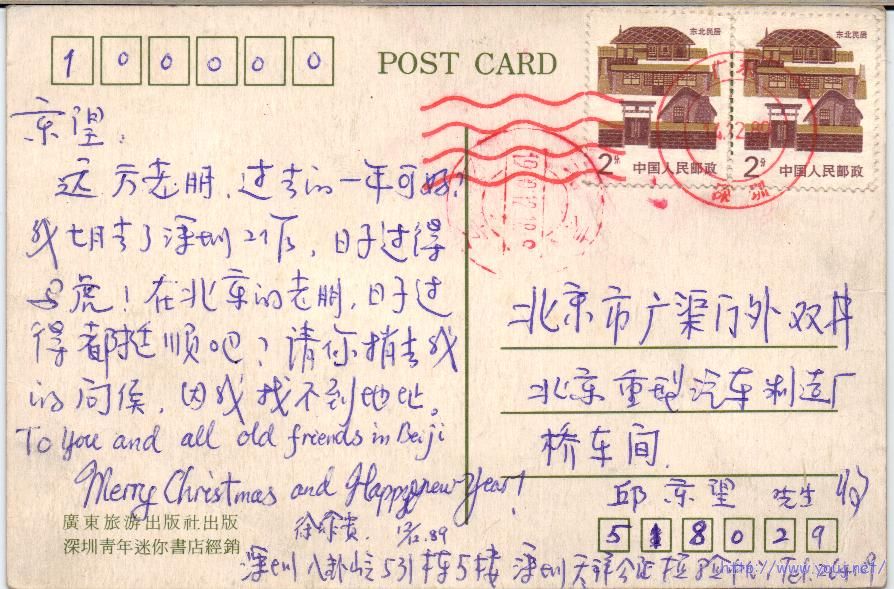 100000
POST CARD
东北民居
东北民居
2分 中国人民邮政
2分 中国人民邮政
京望：
远方老朋，过去的一年可好？
我七月去了深圳工作，日子过得
马虎！在北京的老朋，日子过
得都挺顺吧？请你捎去我
的问侯，因我找不到地址。
To you and all old friends in Beiji
Merry Christmas and Happy new Year!
12.89
北京市广渠门外双井
北京重型汽车制造厂
桥车间
邱京望 先生 收
518029
廣東旅游出版社出版
深圳青年迷你書店經銷
深圳八卦岭531栋5楼 深圳天祥公司
http://www.youj.net/